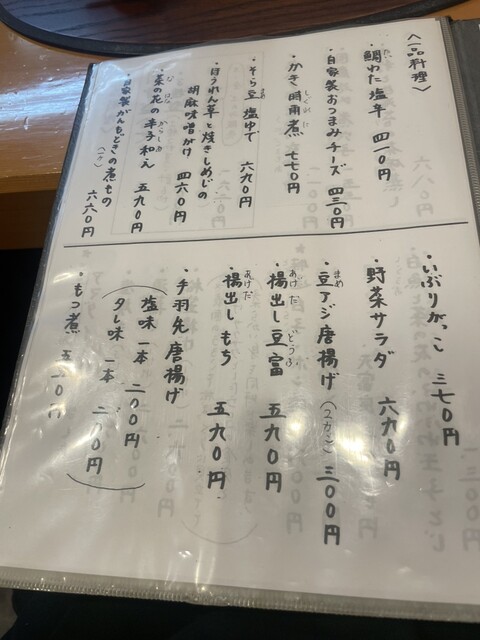 〈一品料理〉
・鯛わた塩辛 四一〇円
・自家製おつまみチーズ 四三〇円
・かき時雨煮 七七〇円
・そら豆塩ゆで 六九〇円
・ほうれん草と焼きしめじの
胡麻味噌がけ 四六〇円
・菜の花の辛子和え 五九〇円
・自家製がんもどきの煮もの
六六〇円
・いぶりがっこ 三七〇円
・野菜サラダ 六九〇円
・豆アジ唐揚げ(2カンゴ) 三〇〇円
・揚出し豆富 五九〇円
・揚出しもち 五九〇円
・手羽先唐揚げ
塩味 一本 二〇〇円
タレ味 一本 二〇〇円
・もつ煮 五五〇円